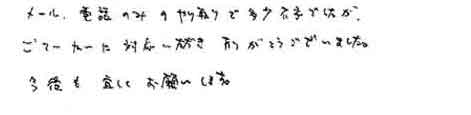 メール、電話のみのやり取りで多少不安でしたが、
ていねいに対応いただき ありがとうございました。
今後も 宜しく お願いします。